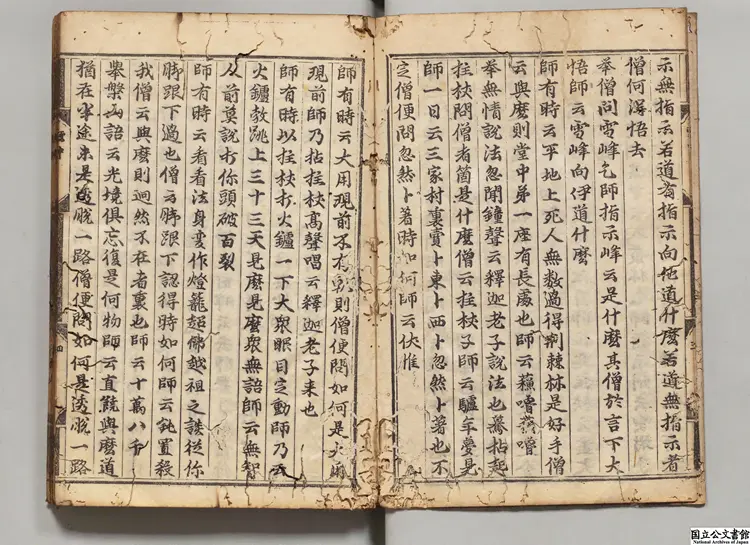 示無指示若道有指示向他道什麼若道無指示者
僧何得悟去
舉僧問雪峰乞師指示峰云是什麼其僧於言下大
悟師云雪峰向伊道什麼
師有時云平地上死人無數過得荊棘林是好手僧
云與麼則堂中第一座有長處也師云蘇嚕蘇嚕
舉無情說法忽聞鐘聲云釋迦老子說法也驀拈起
拄杖問僧者箇是什麼僧云拄杖子師云驢年夢見
師一日云三家村裏賣卜東卜西卜忽然卜著也不
定僧便問忽然卜著時如何師云伏惟
師有時云大用現前不存軌則僧便問如何是大用
現前師乃拈拄杖高聲唱云釋迦老子來也
師有時以拄杖打火鑪一下大眾眼目定動師乃云
火鑪跳上三十三天見麼見麼眾無語師云無智
人前莫說打你頭破百裂
師有時云看看法身變作燈籠超佛越祖之談從你
脚跟下過也僧云脚跟下認得時如何師云鈍置殺
我僧云與麼則迥然不在者裏也師云十萬八千
舉槃山語云光境俱忘復是何物師云直饒與麼道
猶在半途未是透脫一路僧便問如何是透脫一路
国立公文書館
National Archives of Japan